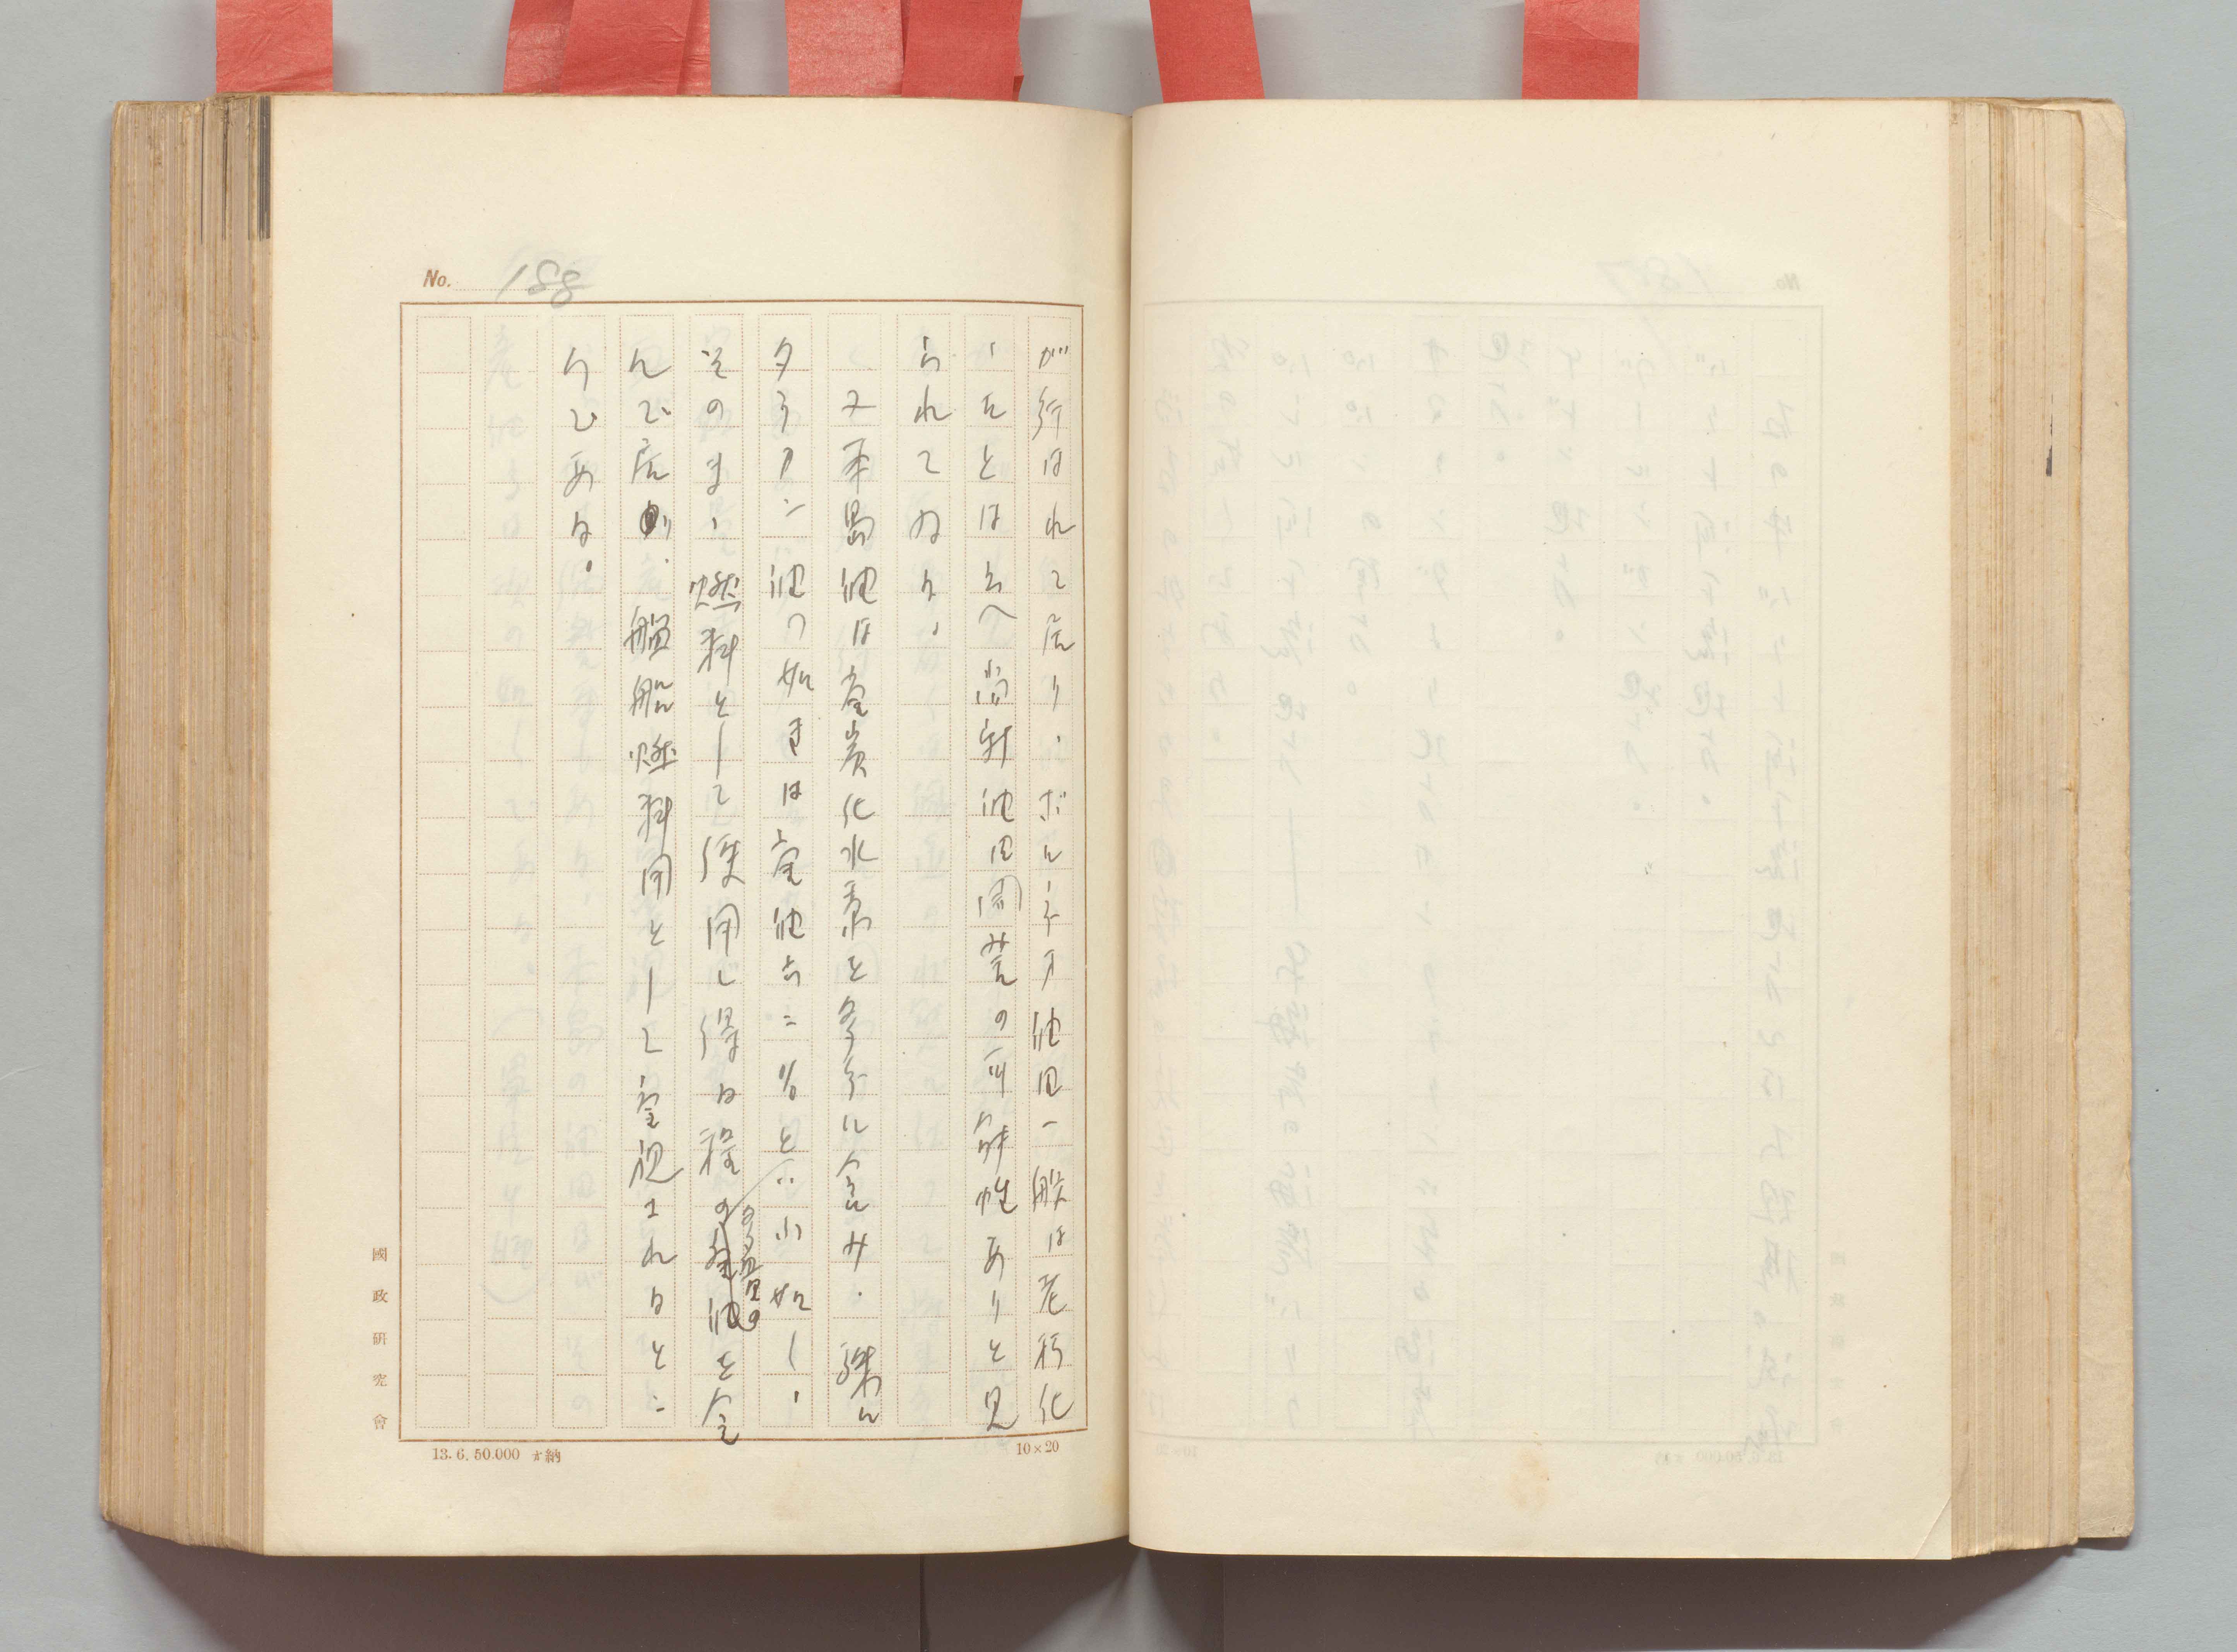 No. 188
が行はれて居り、ボルネオ油田一般は老朽化
したとは云へ尚新油田開発の可能性ありと見
られてゐ
又本島油は重炭化水素を多分に含み、殊に
タラカン油の如きは重油六二%と云ふ如く、
そのまゝ燃料として使用し得る程の重油を含
んで居り、艦船燃料用として重視されるとこ
ろである。
國政研究會
13. 6. 50.000 納
10×20